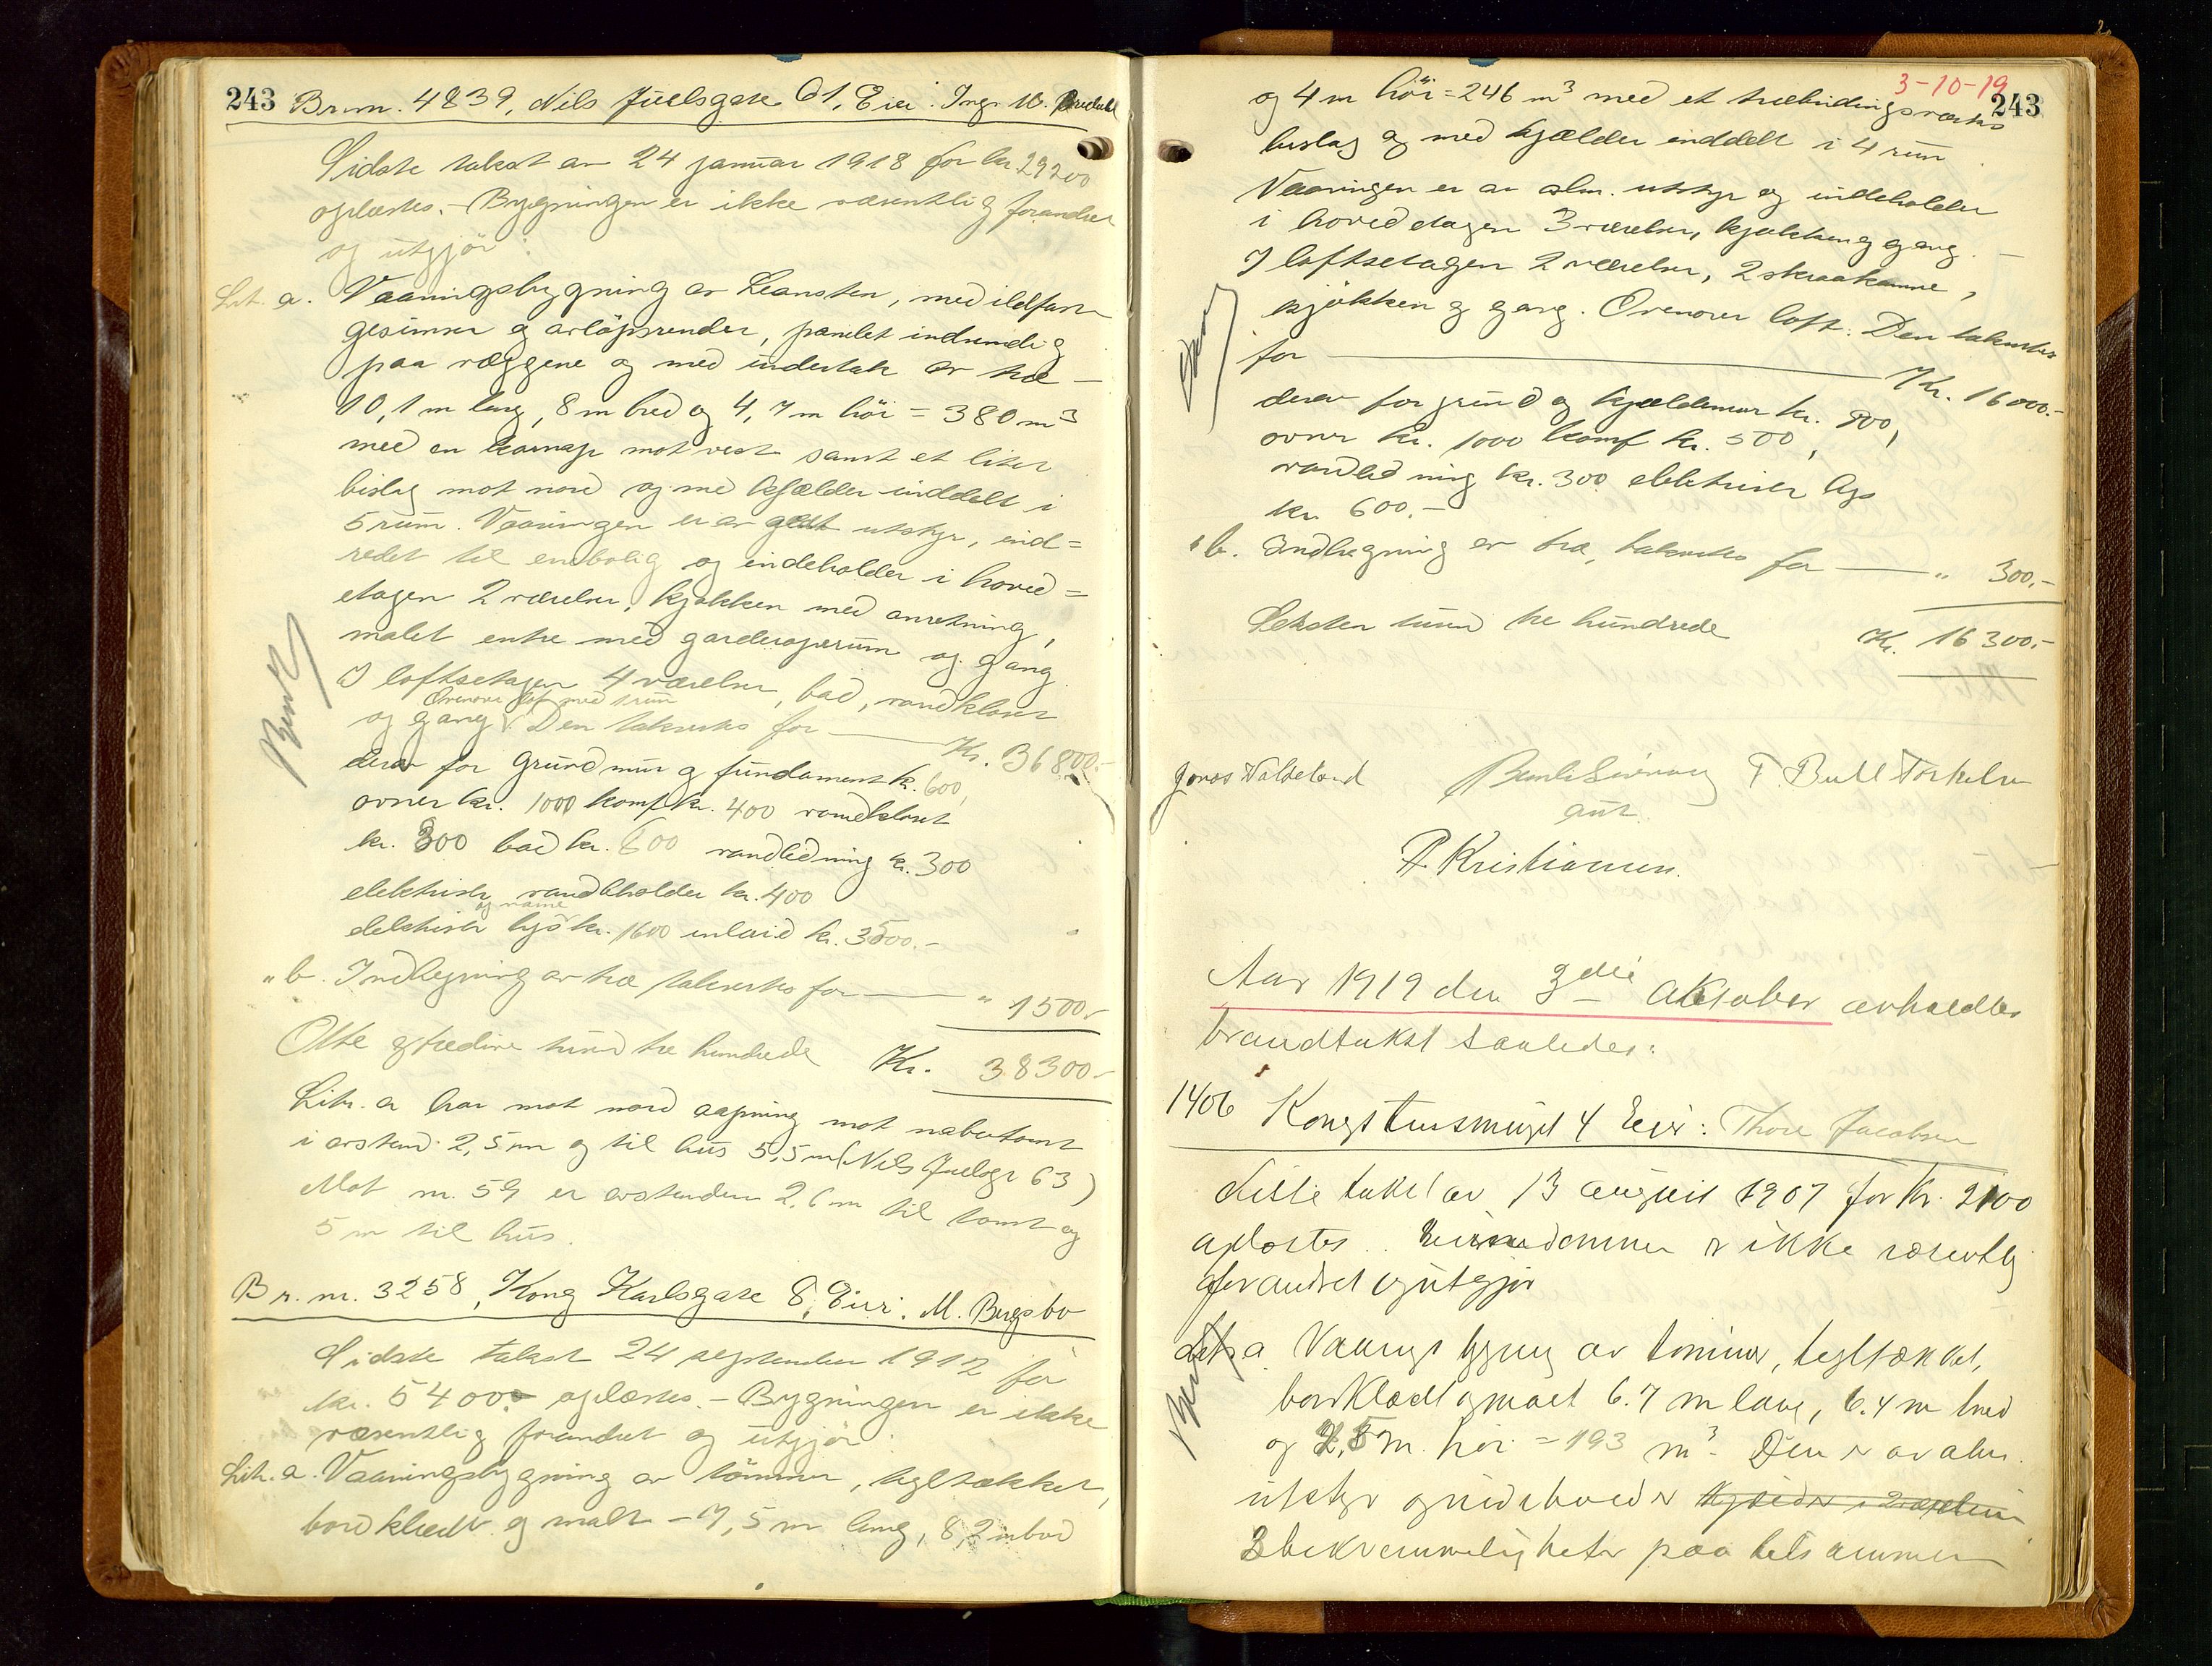 243 Br.nr. 4839, Nils Juelsgate 61, Eier: Ingr.
Sidste takst av 24 januar 1918 for kr. 29200
oplæstes. - Bygningen er ikke væsentlig forandret
og utgjör:
Lit. a. Vaaningsbygning av Leansten, med ildfaste
gesimser og avlöpsrender, panelet indvendig
paa væggene og med undertak av træ -
10,1 m lang, 8 m bred og 4,7 m höi = 380 m³
med en karnap mot vest samt et litet
bislag mot nord og med kjælder inddelt i
5 rum. Vaaningen er av godt utstyr, ind=
redet til enebolig og indeholder i hoved=
etagen 2 værelser, kjökken med anretning,
malet entre med garderoperum og gang.
I loftsetagen 4 værelser, bad, vandkloset
Ovenover loft med 1 rum
og gang. Den takseres for Kr. 36800.-
Bendt
derav for grundmur og fundament kr. 600,
ovner kr. 1000 komf. kr. 400 vandkloset
kr. 300 bad kr. 600 vandledning kr. 300
elektrisk vandbeholder kr. 400
og varme
elektrisk lys kr. 1600 inlaid kr. 3500.-
" b. Indhegning av træ takseres for " 1500.-
Otte og tredive tusind tre hundrede Kr. 38300.-
Litr. a har mot nord aapning mot nabotomt
i avstand 2,5 m og til hus 5,5 m (Nils Juelsgt 63)
Mot nr. 59 er avstanden 2,6 m til tomt og
5 m til hus.
Br. nr. 3258, Kong Karlsgate 8, Eier: M. Bergsbo
Sidste takst 24 september 1912 for
kr. 5400.- oplæstes. - Bygningen er ikke
væsentlig forandret og utgjör:
Lit. a. Vaaningsbygning av tömmer, tegltækket,
bordklædt og malt - 7,5 m lang, 8,2 m bred
3-10-19
243
og 4 m höi = 246 m³ med et træbindingsverks
bislag og med kjælder inddelt i 4 rum
Vaaningen er av alm. utstyr og indeholder
i hovedetagen 3 værelser, kjøkken og gang. -
I loftsetagen 2 værelser, 2 skraakamre,
kjökken og gang. Ovenover loft. Den takseres
for Kr. 16000.-
derav for grund og kjældermur kr. 900,
ovner kr. 1000 komf kr. 500,
vandledning kr. 300 elektrisk lys
kr. 600.-
" b. Indhegning av træ, takseres for " 300.-
Seksten tusind tre hundrede Kr. 16300.-
Jonas Valseland Bendt Sivertsen T. Bull Torkelsen
P. Kristiansen.
Aar 1919 den 3die Oktober avholdtes
brandtakst saaledes:
1406 Kongstensmuget 4 Eier: Thore Jacobsen
Siste takst av 13 august 1907 for Kr. 2100
oplæstes. Eiendommen er ikke væsentlig
forandret og utgjør
Litr a. Vaanings bygning av tømmer, tegltækket,
bordklædt og malt 6.7 m lang, 6.4 m bred
og 4,5 m. høi = 193 m³. Den er av alm.
Bendt
utstyr og indeholder
3 bekvemmeligheter paa tilsammen